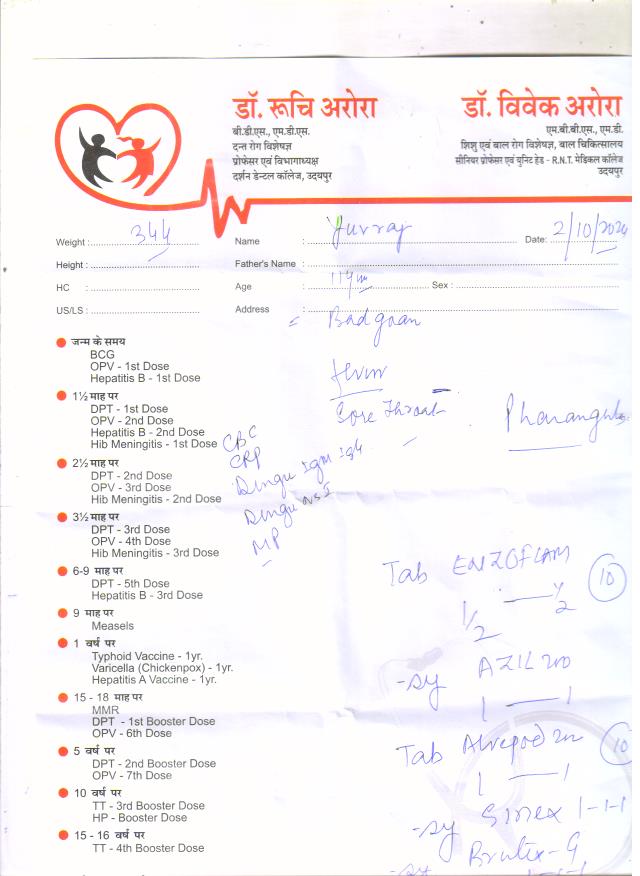 डॉ. रूचि अरोरा
बी.डी.एस., एम.डी.एस.
दन्त रोग विशेषज्ञ
प्रोफेसर एवं विभागाध्यक्ष
दर्शन डेन्टल कॉलेज, उदयपुर
डॉ. विवेक अरोरा
एम.बी.बी.एस., एम.डी.
शिशु एवं बाल रोग विशेषज्ञ, बाल चिकित्सालय
सीनियर प्रोफेसर एवं यूनिट हेड - R.N.T. मेडिकल कॉलेज
उदयपुर
Weight : Name : Yuvraj Date: 2/10/2024
Height : Father's Name :
HC : Age : 11 Sex :
US/LS : Address : Badgaan
जन्म के समय
BCG
OPV - 1st Dose
Hepatitis B - 1st Dose
Fever
1½ माह पर
DPT - 1st Dose
OPV - 2nd Dose
Hepatitis B - 2nd Dose
Hib Meningitis - 1st Dose
Sore Throat
CBC
CRP
Dingu IgM IgG
Dingu NS1
MP
2½ माह पर
DPT - 2nd Dose
OPV - 3rd Dose
Hib Meningitis - 2nd Dose
3½ माह पर
DPT - 3rd Dose
OPV - 4th Dose
Hib Meningitis - 3rd Dose
6-9 माह पर
DPT - 5th Dose
Hepatitis B - 3rd Dose
9 माह पर
Measels
1 वर्ष पर
Typhoid Vaccine - 1yr.
Varicella (Chickenpox) - 1yr.
Hepatitis A Vaccine - 1yr.
15 - 18 माह पर
MMR
DPT - 1st Booster Dose
OPV - 6th Dose
5 वर्ष पर
DPT - 2nd Booster Dose
OPV - 7th Dose
10 वर्ष पर
TT - 3rd Booster Dose
HP - Booster Dose
15 - 16 वर्ष पर
TT - 4th Booster Dose
Tab ENZOFLAM 10
1/2 — 1/2
- sy AZIL 200
1 — 1
Tab 10
1 — 1
- sy 1-1-1
- sy